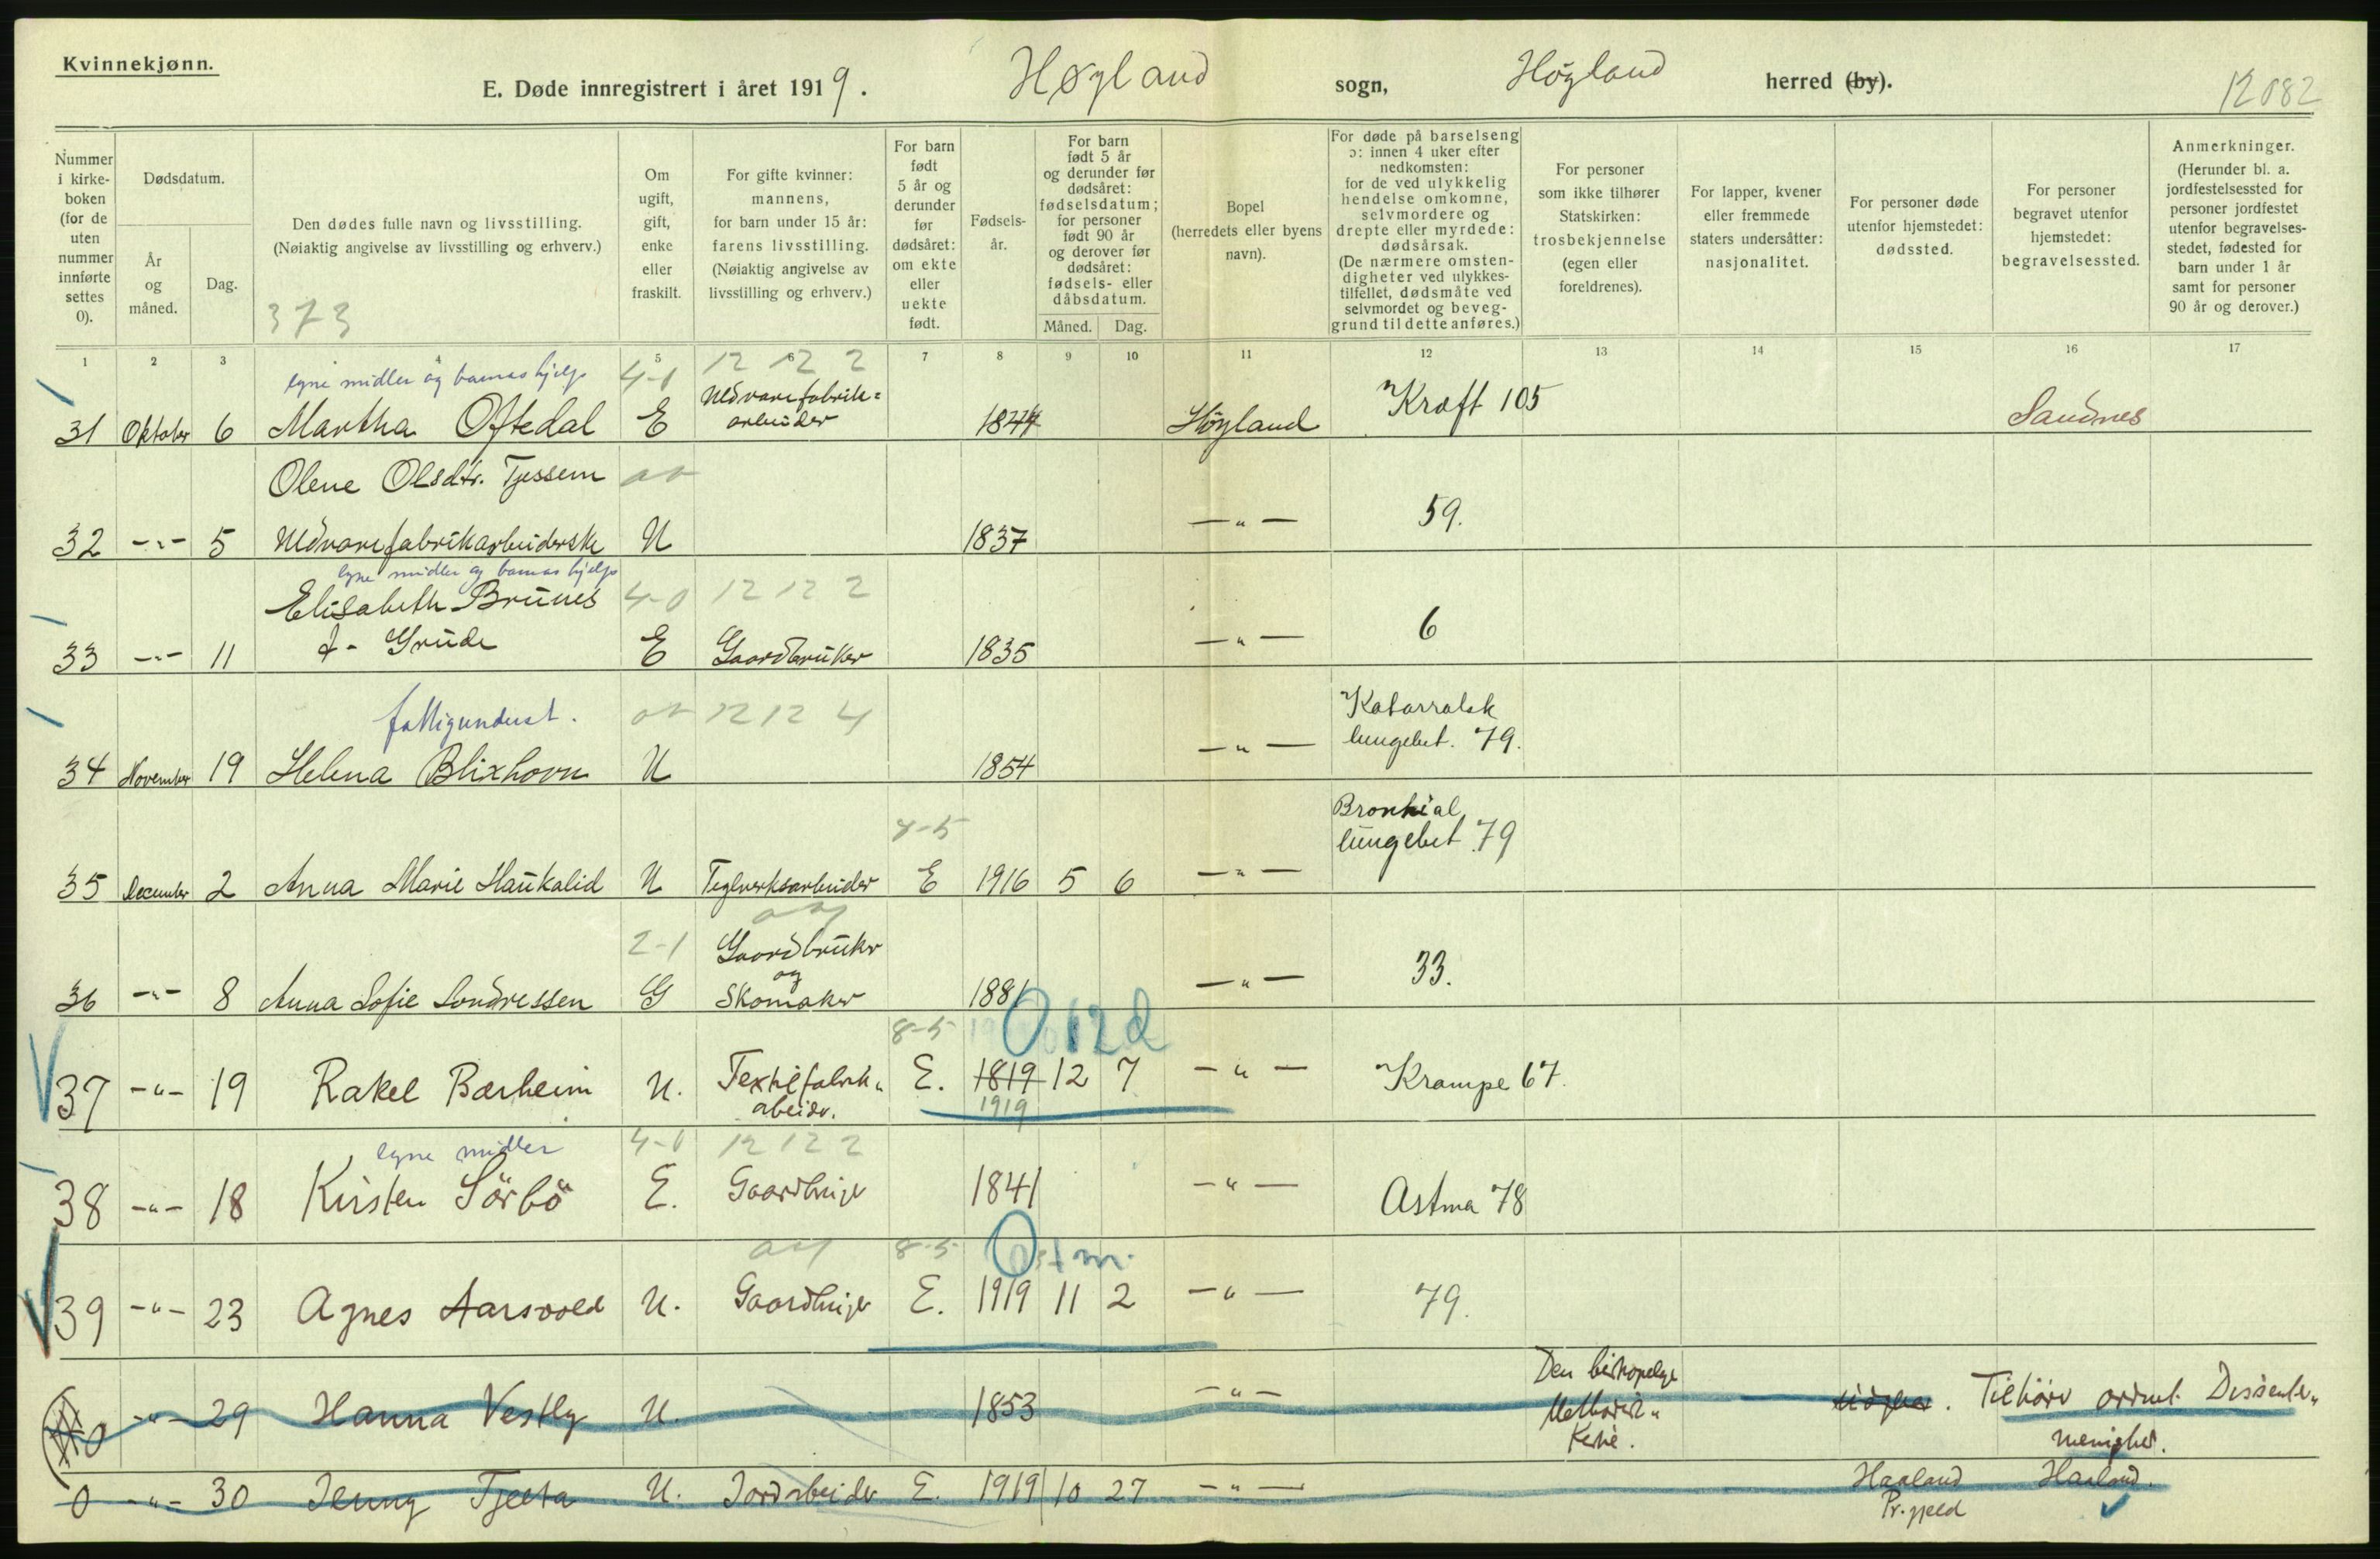 Kvinnekjønn.
E. Døde innregistrert i året 1919. Høyland sogn, Höyland herred (by).
12082
Nummer i kirke- boken (for de uten nummer innførte settes 0).
Dødsdatum.
År og måned.
Dag.
Den dødes fulle navn og livsstilling.
(Nøiaktig angivelse av livsstilling og erhverv.)
373
Om ugift, gift, enke eller fraskilt.
For gifte kvinner: mannens, for barn under 15 år: farens livsstilling. (Nøiaktig angivelse av livsstilling og erhverv.)
For barn født 5 år og derunder før dødsåret: om ekte eller uekte født.
Fødsels- år.
For barn født 5 år og derunder før dødsåret: fødselsdatum; for personer født 90 år og derover før dødsåret: fødsels- eller dåbsdatum.
Måned. Dag.
Bopel (herredets eller byens navn).
For døde på barselseng ɔ: innen 4 uker efter nedkomsten: for de ved ulykkelig hendelse omkomne, selvmordere og drepte eller myrdede: dødsårsak. (De nærmere omsten- digheter ved ulykkes- tilfellet, dødsmåte ved selvmordet og beveg- grund til dette anføres.)
For personer som ikke tilhører Statskirken: trosbekjennelse (egen eller foreldrenes).
For lapper, kvener eller fremmede staters undersåtter: nasjonalitet.
For personer døde utenfor hjemstedet: dødssted.
For personer begravet utenfor hjemstedet: begravelsessted.
Anmerkninger. (Herunder bl. a. jordfestelsessted for personer jordfestet utenfor begravelses- stedet, fødested for barn under 1 år samt for personer 90 år og derover.)
1 2 3 4 5 6 7 8 9 10 11 12 13 14 15 16 17
egne midler og barnas hjelp 4-0 12 12 2
Uldvarefabrik=
31 Oktober 6 Martha Oftedal E arbeider 1844 Höyland Kræft 105 Sandnes
Olene Olsdtr. Tjessem
32 -"- 5 Uldvarefabrikarbeiderske U 1837 -"- 59.
egne midler og barnas hjelp
Elisabeth Brunes 4-0 12 12 2
33 -"- 11 f. Grude E Gaardbruker 1835 -"- 6
fattigunderst. 12 12 4
34 November 19 Helena Blixhovn U 1854 -"- Katarralsk lungebet. 79.
8-5
35 December 2 Anna Marie Haukalid U Teglverksarbeider E 1916 5 6 -"- Bronkial lungebet 79
2-1 Gaardbruker og
36 -"- 8 Anna Sofie Sondressen G Skomaker 1881 -"- 33.
8-5 0 12 d
37 -"- 19 Rakel Bærheim U. Textilfabrik" arbeider. E. 1819 1919 12 7 -"- Krampe 67.
egne midler 4-0 12 12 2
38 -"- 18 Kirsten Sörbö E. Gaardbruger 1841 -"- Astma 78
8-5 0 1 m.
39 -"- 23 Agnes Aarsvold U. Gaardbruger E. 1919 11 2 -"- 79.
0 -"- 29 Hanna Vestly U. 1853 -"- Den biskopelige Methodist" Kirke. Tilhörer ordnet Dissenter" menighet.
0 -"- 30 Jenny Tjelta U. Jordarbeider E. 1919 10 27 -"- Haaland Pr.gjeld Haaland.